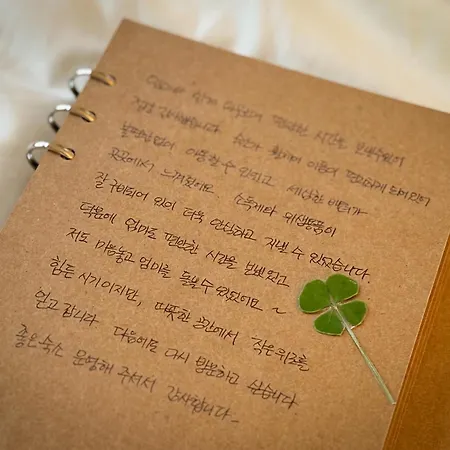 엄마와 함께 덕분에 편안한 시간을 보내었어
정말 감사했습니다. 숙소가 휠체어 이용이 편리하게 되어있어
불편함없이 이동할 수 있었고 세심한 배려가
곳곳에서 느껴졌어요. 소독제와 위생용품이
잘 구비되어 있어 더욱 안심하고 지낼 수 있었습니다.
덕분에 엄마도 편안한 시간을 보냈고
저도 마음놓고 엄마를 돌볼 수 있었어요~
힘든 시기이지만, 따뜻한 공간에서 작은위로를
얻고 갑니다. 다음에도 다시 방문하고 싶습니다
좋은숙소 운영해 주셔서 감사합니다-